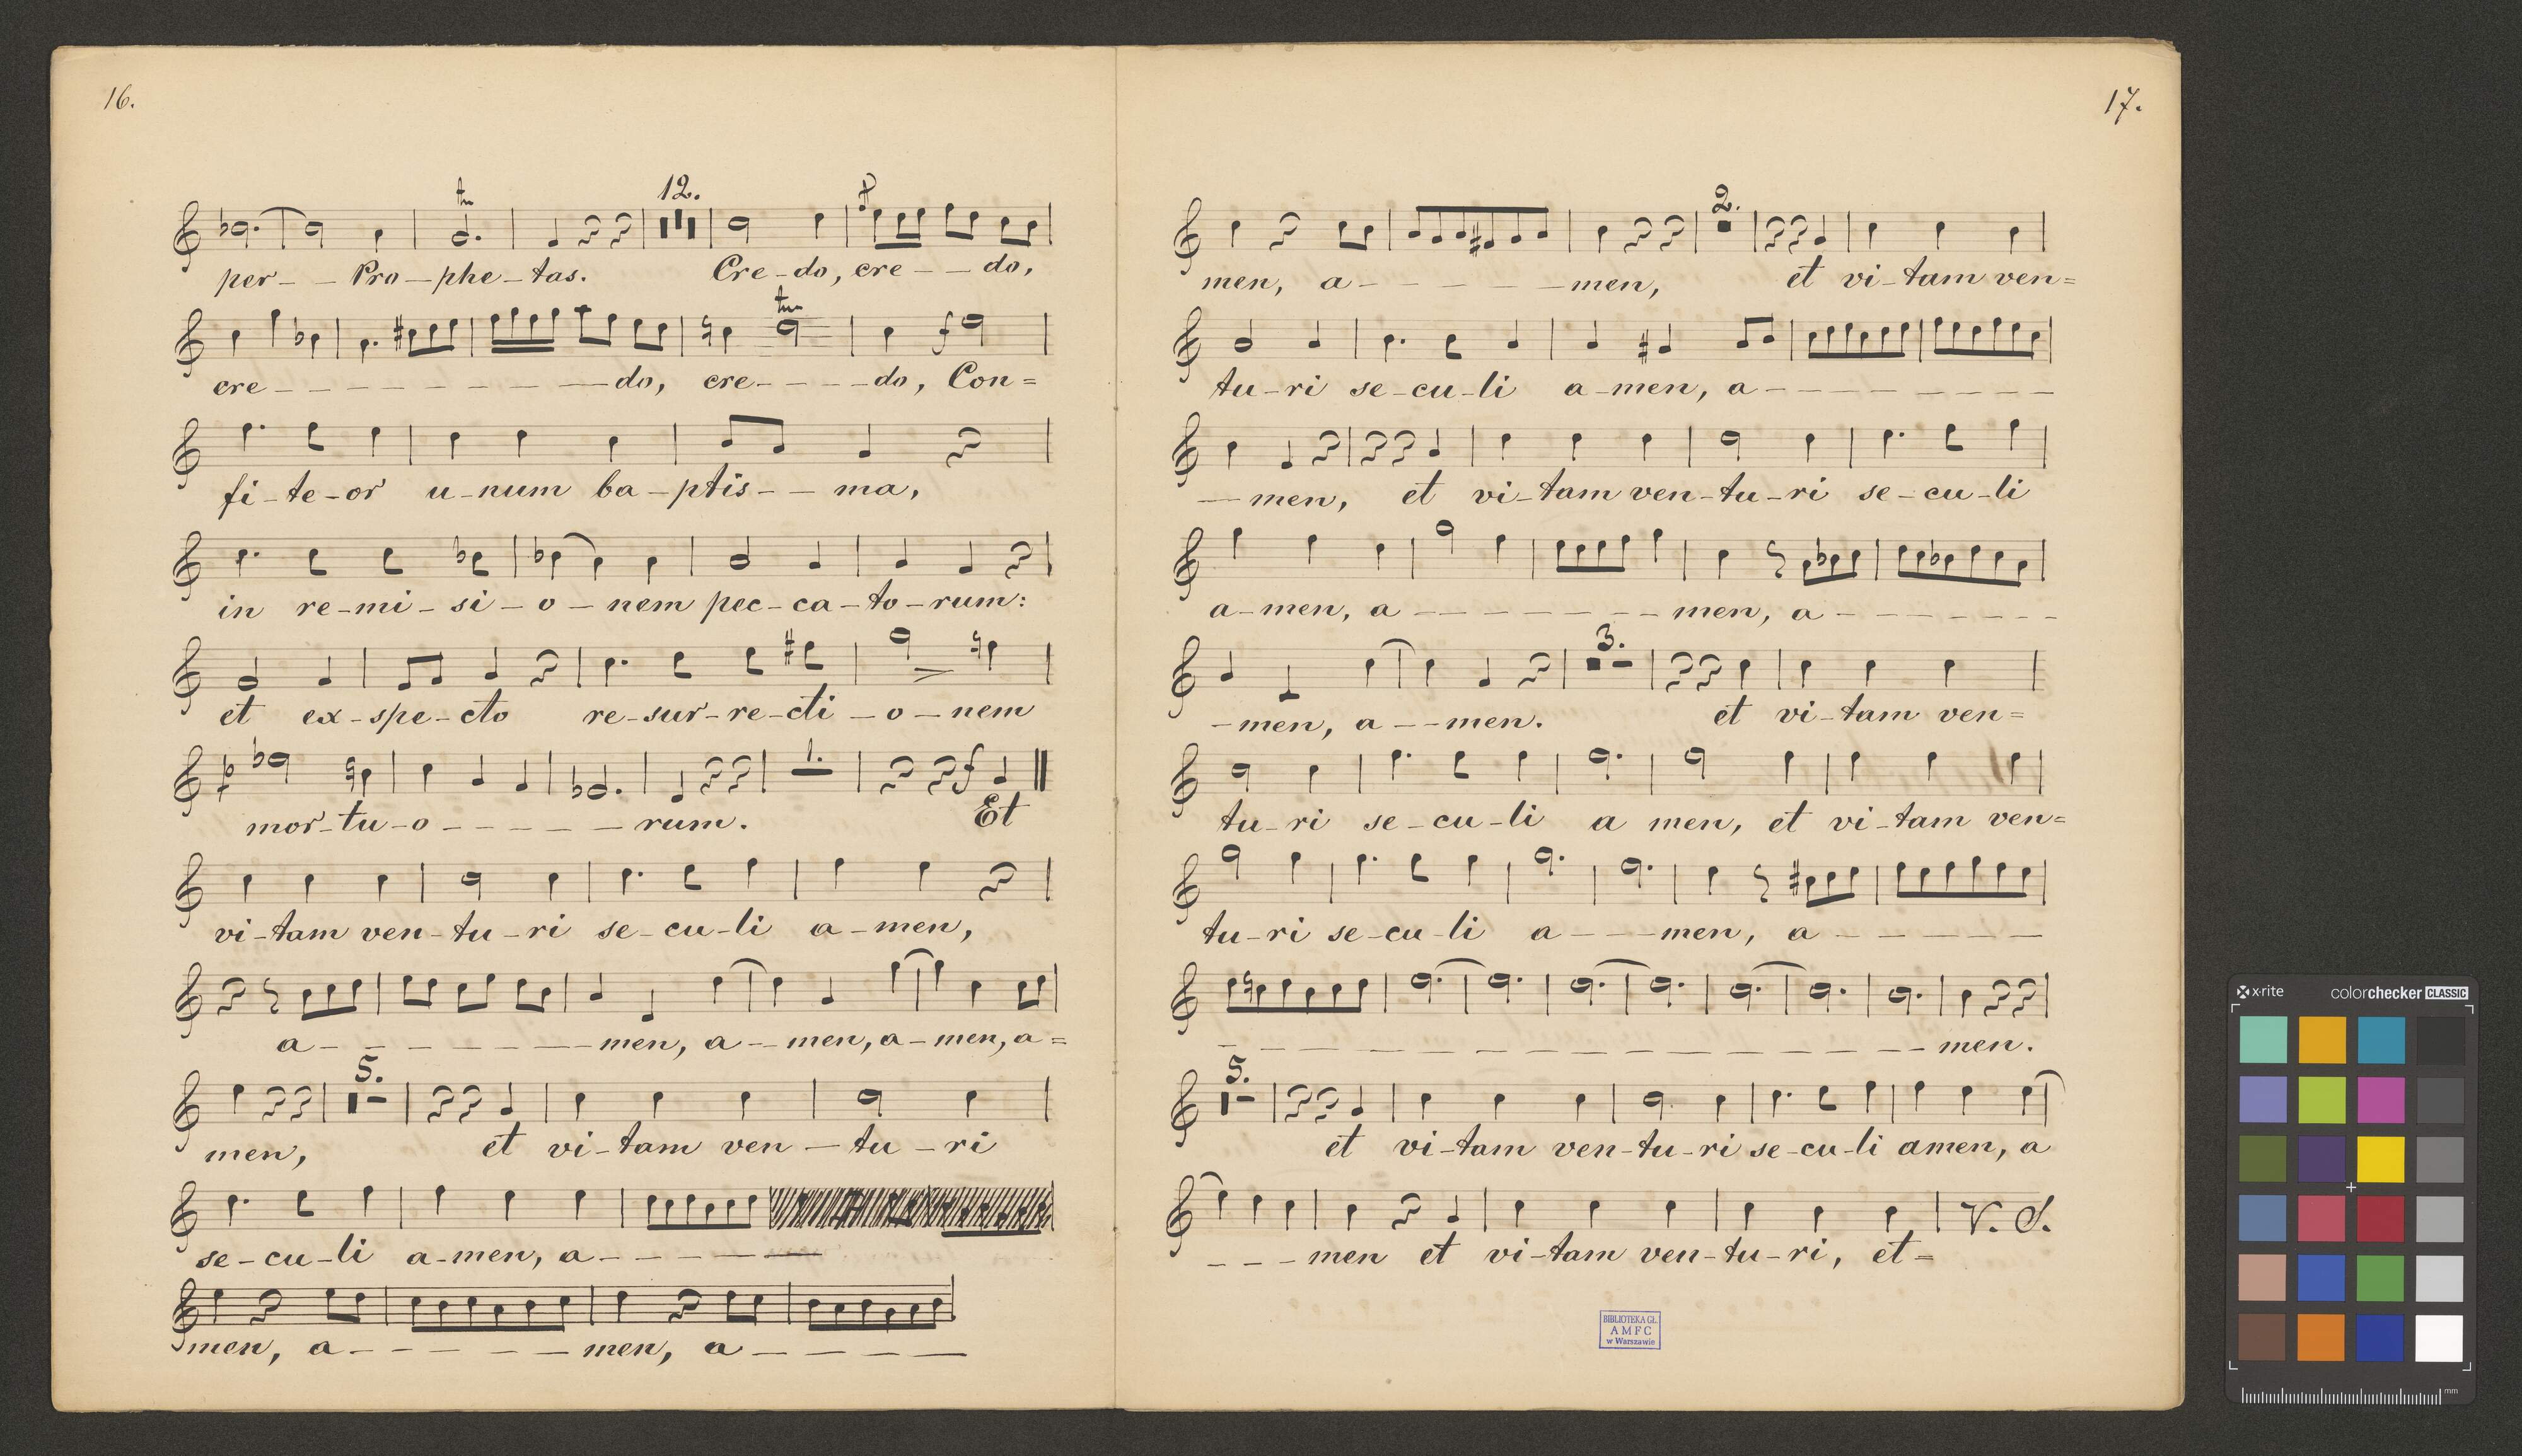 16.
tr 12. p
per - - Pro - phe - tas. Cre - do, cre - - do,
tr
cre - - - - - - - - - do, cre - - - - do, f Con=
fi - te - or u - num ba - ptis - - ma,
in re - mi - si - o - nem pec - ca - to - rum:
et ex - spe - cto re - sur - re - cti - o - nem
1. f
mor - tu - o - - - - - - rum. Et
vi - tam ven - tu - ri se - cu - li a - men,
a - - - - - - - men, a - - men, a - men, a =
5.
men, et vi - tam ven - tu - ri
se - cu - li a - men, a - - - - -
men, a - - - - - men, a - - - - -
17.
2.
men, a - - - - - - men, et vi - tam ven=
tu - ri se - cu - li a - men, a - - - - - - - -
- men, et vi - tam ven - tu - ri se - cu - li
a - men, a - - - - - - - men, a - - - - - - -
3.
- men, a - - men. et vi - tam ven=
tu - ri se - cu - li a men, et vi - tam ven=
tu - ri se - cu - li a - - - men, a - - - - - -
- - - - - - - - - - - - - - men.
5.
et vi - tam ven - tu - ri se - cu - li amen, a
V. S.
- - - men et vi - tam ven - tu - ri, et =
BIBLIOTEKA GŁ.
AMFC
w Warszawie
x-rite colorchecker CLASSIC
mm